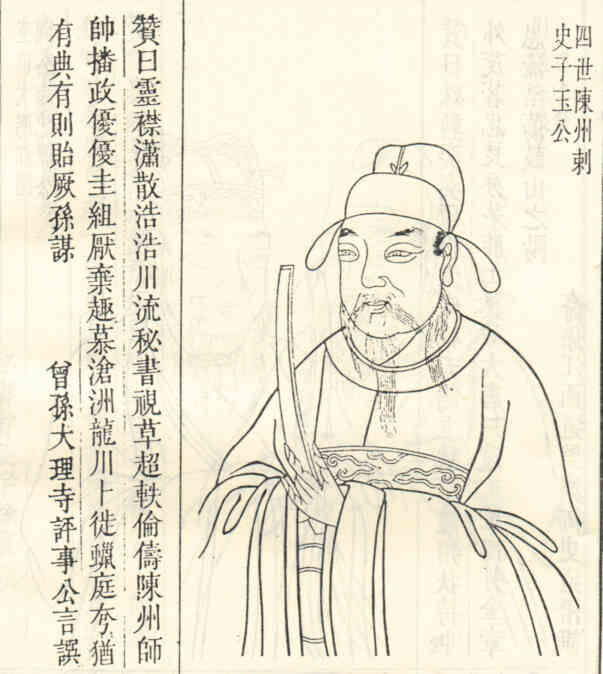 四世陳州刺
史子玉公
贊曰靈襟瀟散浩浩川流秘書視草超軼倫儔陳州師
帥播政優優圭組厭棄趣慕滄洲龍川卜徙蠟庭夸猶
有典有則貽厥孫謀　曾孫大理寺評事公言譔